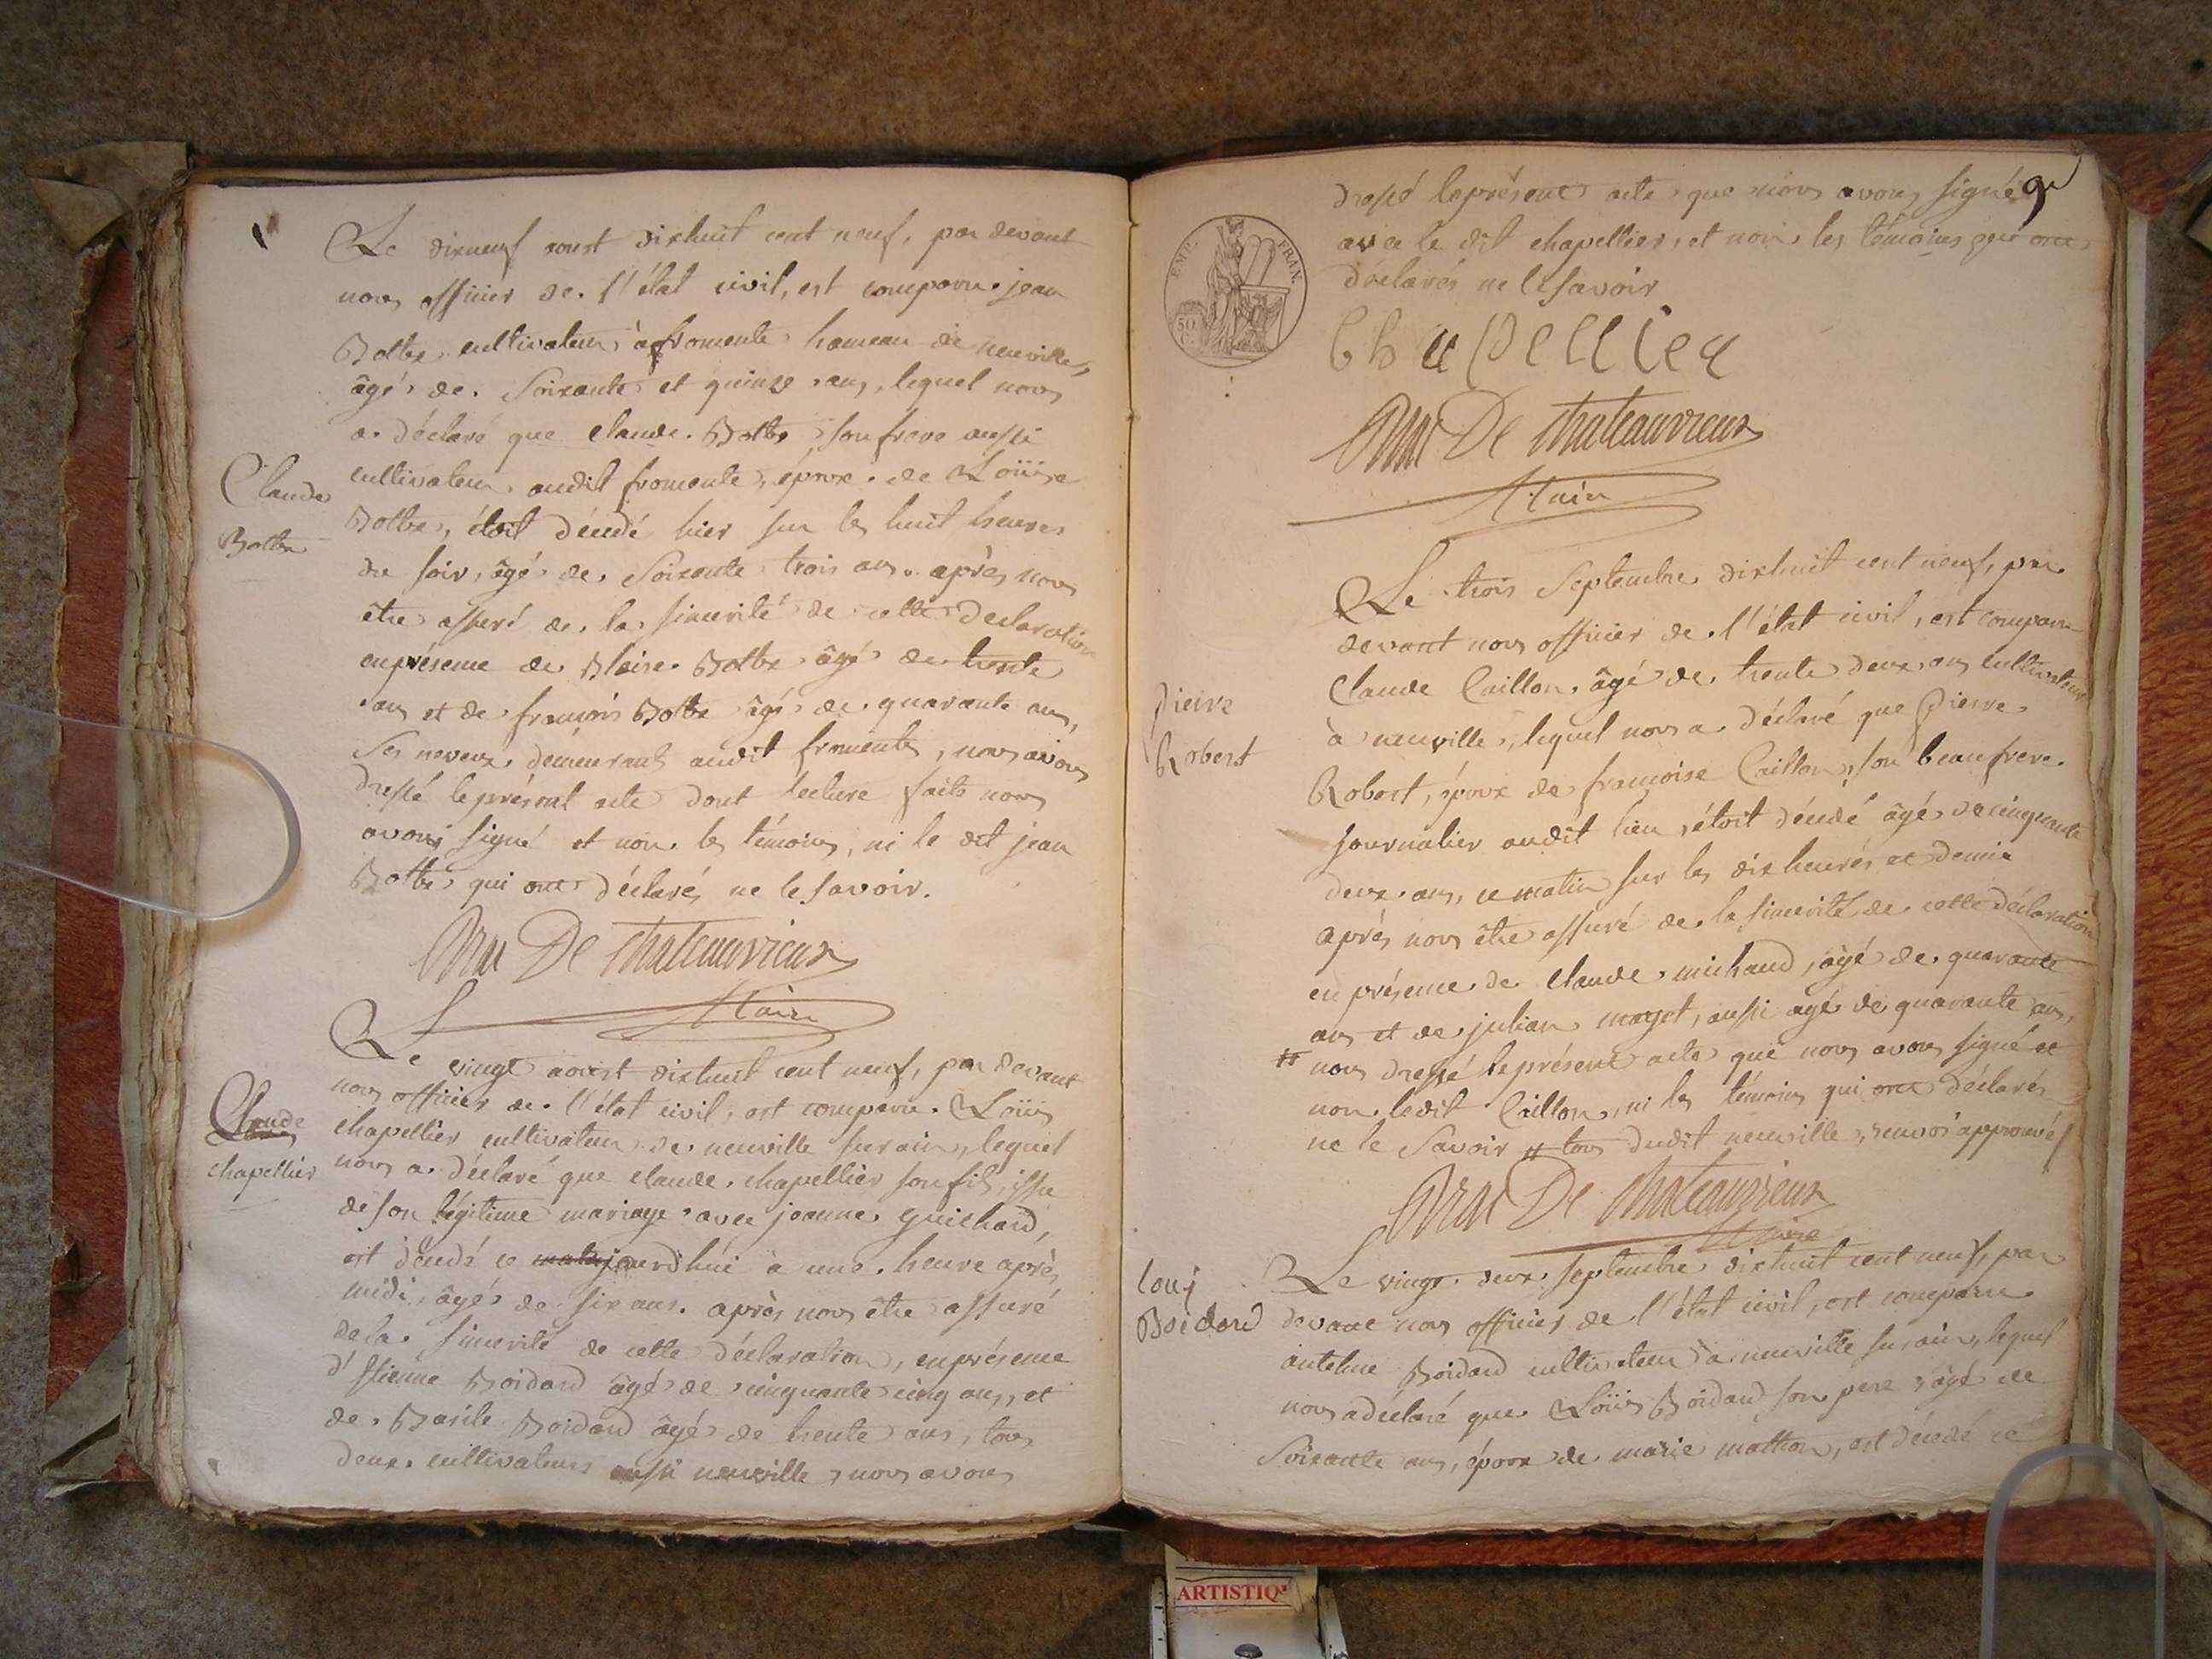 Le dixneuf aoust dixhuit cent neuf, par devant
nous officier de l'état civil, est comparu jean
Bolbe cultivateur à fromente hameau de neuville,
âgé de soixante et quinze ans, lequel nous
a déclaré que claude Bolbe son frere aussi
cultivateur audit fromente, époux de Loüise
Bolbe, étoit décédé hier sur les huit heures
du soir, âgé de soixante trois ans. après nous
être assuré de la sincerité de cette declaration
en présence de Blaise Bolbe âgé de trente
ans et de francois Bolbe âgé de quarante ans,
ses neveux demeurants audit fromente, nous avons
dressé le présent acte dont lecture faite nous
avons signé et non les témoins, ni le dit jean
Bolbe qui ont déclarés ne le savoir.
Claude
Bolbe
De Chateauvieux
Maire
Le vingt aoust dixhuit cent neuf, par devant
nous officier de l'état civil, est comparu Loüis
chapellier cultivateur de neuville sur ain, lequel
nous a déclaré que claude chapellier son fils, issu
de son légitime mariage avec jeanne guichard,
est décédé ce jourdhui à une heure après
midi, âgé de six ans. après nous être assuré
de la sincerité de cette déclaration, en présence
d'Etienne Boidard âgé de cinquante cinq ans, et
de Basile Boidard âgé de trente ans, tous
deux cultivateurs aussi neuville, nous avons
Claude
chapellier
dressé le présent acte que nous avons signé
avec le dit chapellier, et non les témoins qui ont
déclarés ne le savoir
EMP. FRAN.
50 C.
Chapellier
De Chateauvieux
Maire
Le trois septembre dixhuit cent neuf, par
devant nous officier de l'état civil, est comparu
Claude Caillon âgé de trente deux ans cultivateur
à neuville, lequel nous a déclaré que Pierre
Robert, époux de francoise Caillon, son beau frere
journalier audit lieu, étoit décédé âgé de cinquante
deux ans, ce matin sur les dix heures et demie
après nous être assuré de la sincerité de cette déclaration
en présence de claude michaud, âgé de quarante
ans et de julian mayet, aussi agé de quarante ans,
# nous dressé le présent acte que nous avons signé et
non ledit Caillon, ni les témoins qui ont déclarés
ne le savoir # tous dudit neuville, renvoi approuvé
Pierre
Robert
De Chateauvieux
Maire
Le vingt deux septembre dixhuit cent neuf, par
devant nous officier de l'état civil, est comparu
antelme Boidard cultivateur à neuville sur ain, lequel
nous a déclaré que Loüis Boidard son pere, âgé de
soixante ans, époux de marie mathon, est décédé ce
Louis
Boidard
ARTISTIQ